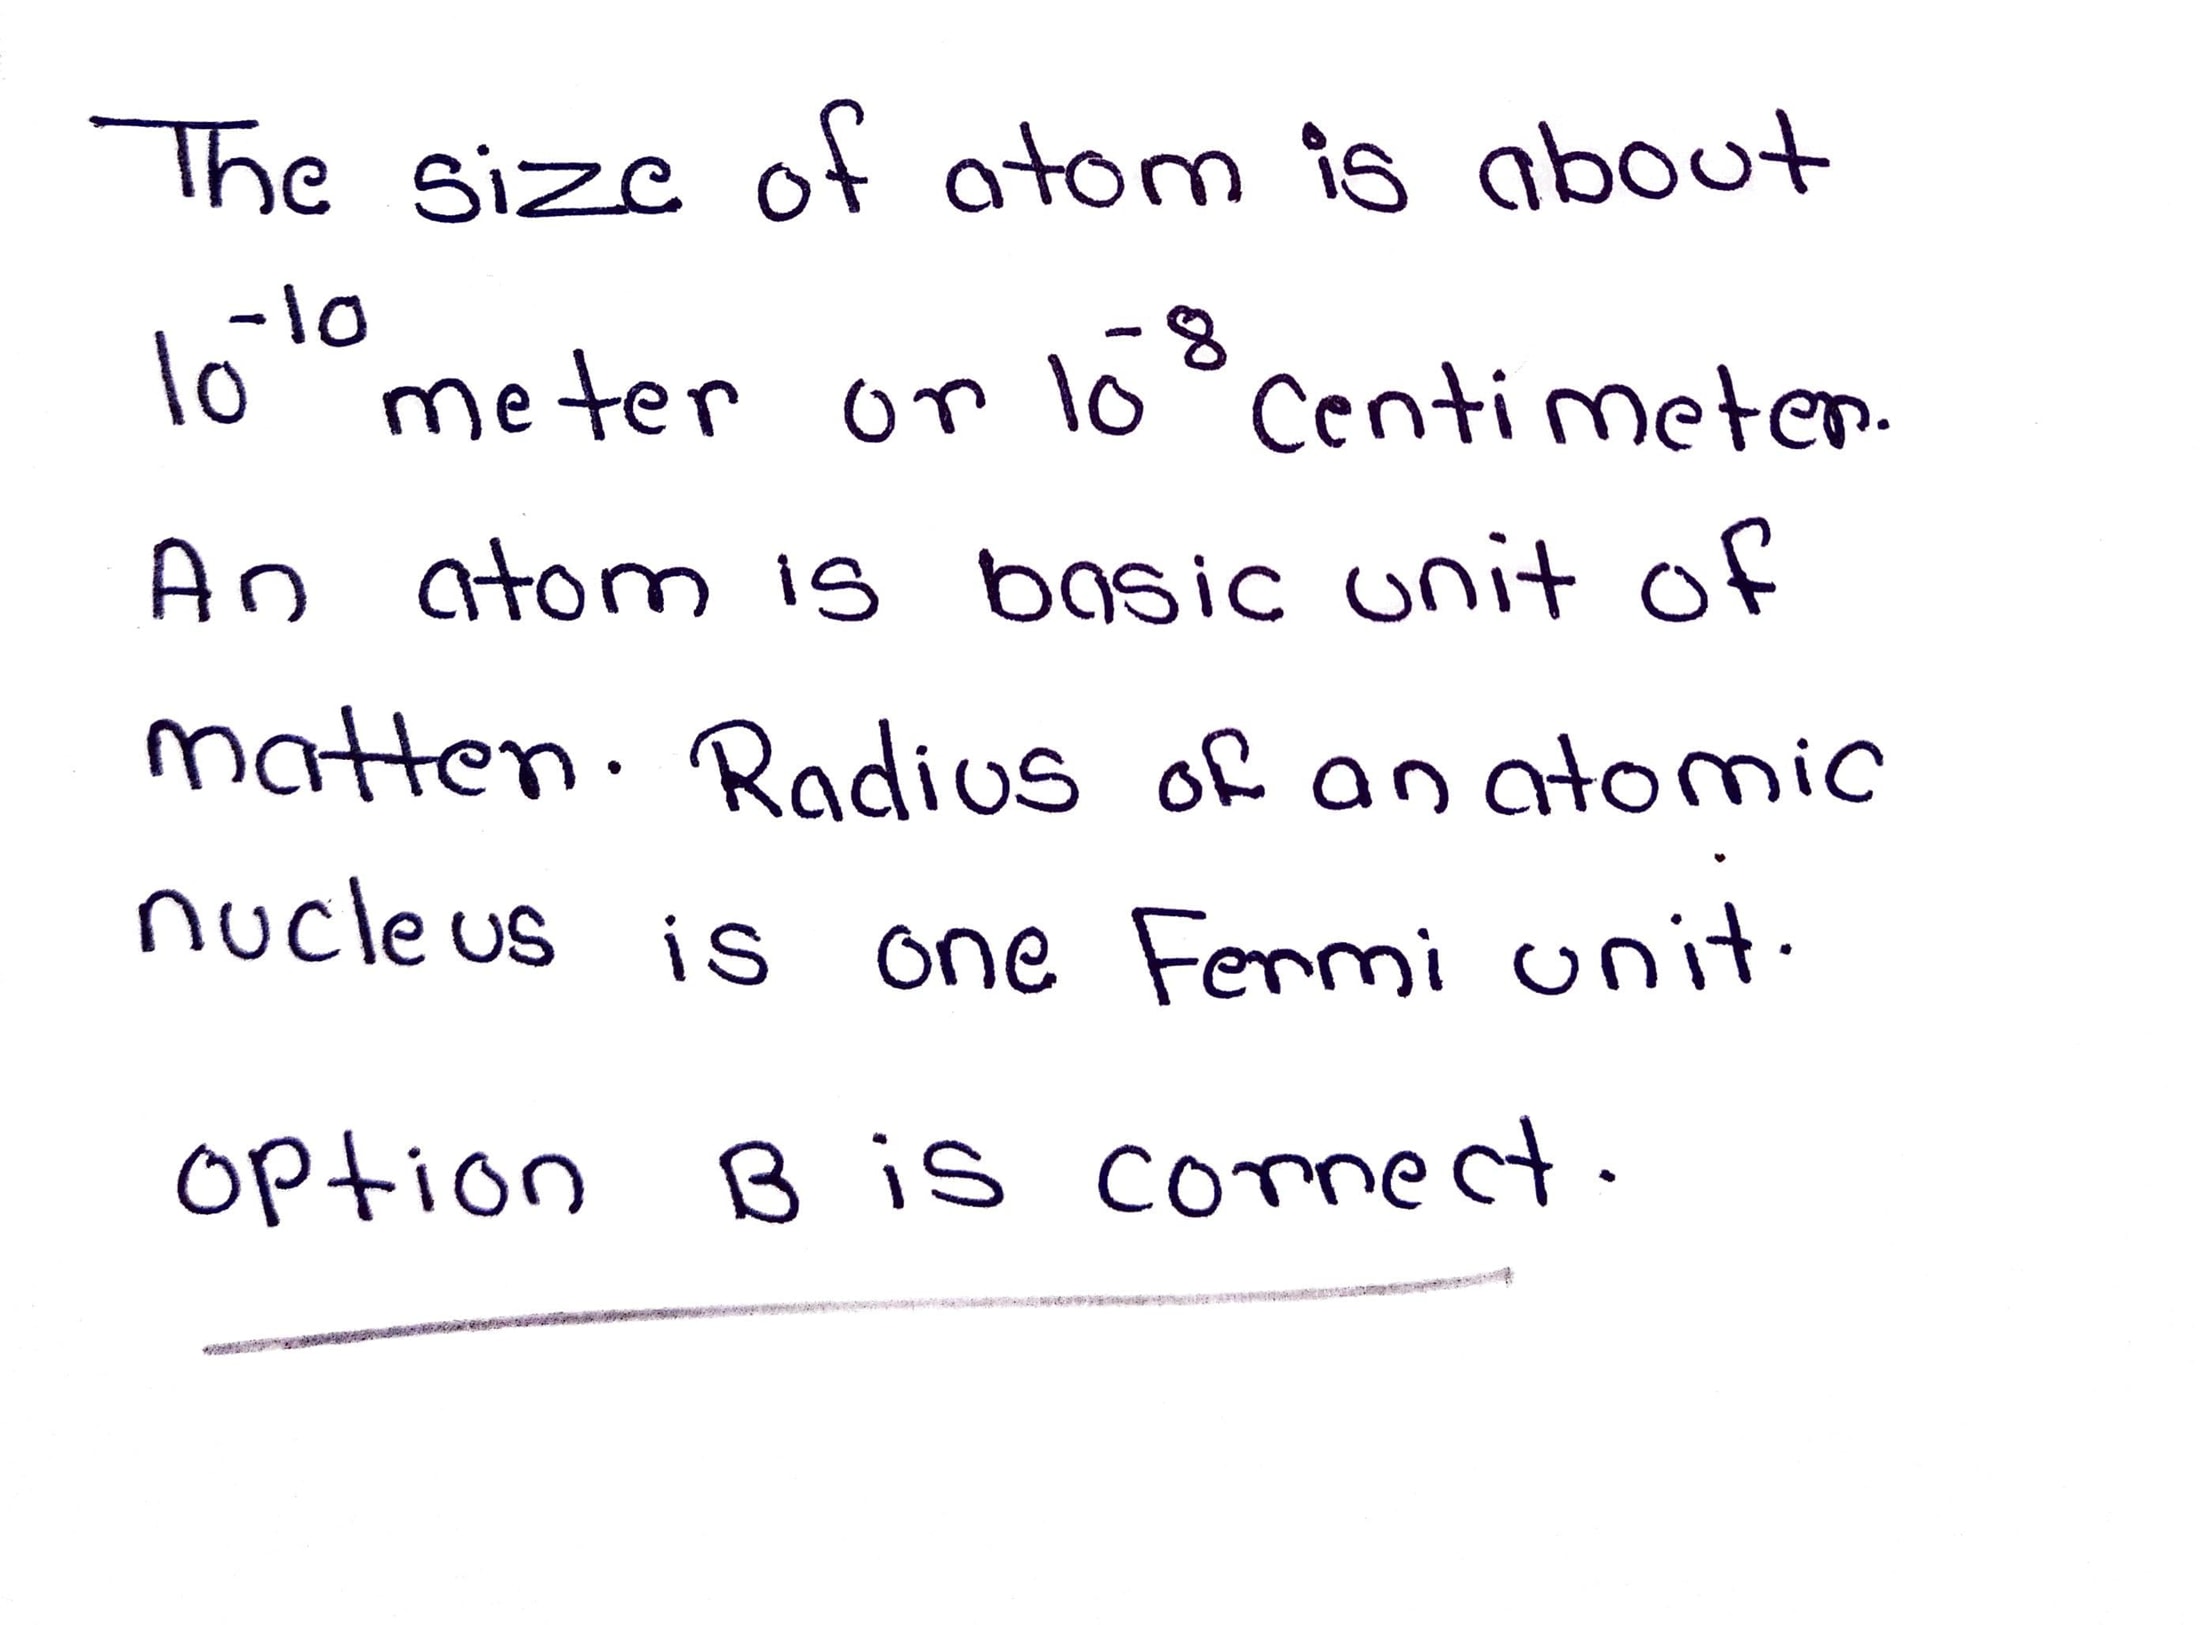 The size of atom is about
10⁻¹⁰ meter or 10⁻⁸ centimeter.
An atom is basic unit of
matter. Radius of an atomic
nucleus is one Fermi unit.
option B is correct.